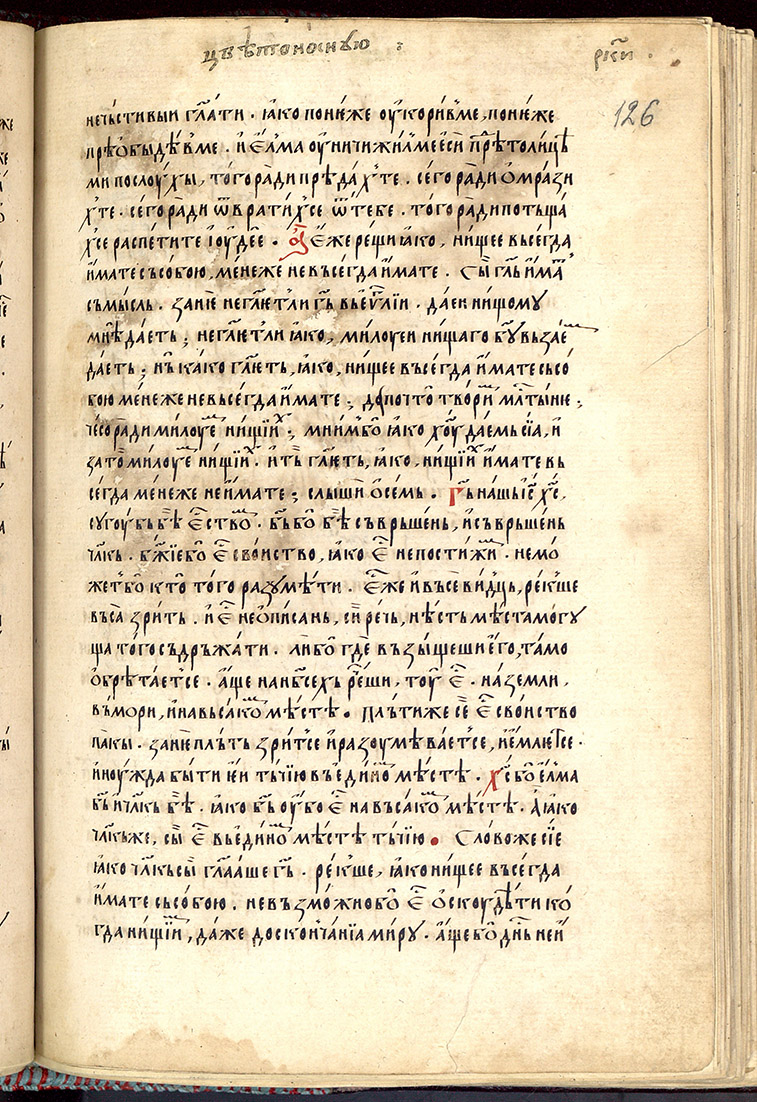 цвѣтоноснꙋю :
рк҃и .
126
нечьстивыи гл҃ати . ꙗко понѥже ѹкоривме , понѥже
прѣѡбыдѣвме . и ѥлма ѹничижилмеѥси прѣтолицѣ
ми послоухы , того ради прѣдах҃те . сего ради ѡмрази
х҃те . сего ради ѿвратих҃се ѿ тебе . того ради потьща
х҃се распетите іоудее . ѥже рещи ꙗко , нищее вьсегда
имате съсобою , мене же не въсегда имате . сы г҃ль има
съмысль . заніе не гл҃ѥтли г҃ь въеѵ҃лїи . даеи нищому
мнѣ даеть ; не гл҃ѥтли ꙗко , милоуеи нищаго б҃ꙋ възае
даеть ; нь како гл҃ѥть , ꙗко , нищее въсегда имате сьсо
бою мене же не въсегда имате ; допочто твори мл҃тыню ;
чесо ради милоуе нищїих ; мнимбо ꙗко х҃оу даемь сїа , и
зато милоуе нищїих . итъ гл҃ѥть , ꙗко , нищїих имате вь
сегда мене же не имате ; слыши ѡсемь . Г҃ь нашь і҃с х҃с ,
сꙋгоубь бѣ ѥство . б҃ь бо бѣ съврьшень , и съврьшень
чл҃кь . бж҃їе бо ѥ҃ своиство , ꙗко ѥ҃ непостижи . немо
жет бо кто того разꙋмѣти . ѥже и вьсевидць , рекше
въса зрить . и ѥ҃ неѡписань , си речь , нѣсть мѣста могꙋ
ща того съдръжати . либо где възыщеши ѥго , тамо
ѡбрѣтаетсе . аще на нб҃сехь рещи , тоу ѥ҃ . на земли ,
въ мори , и на вьсако мѣсте . плътиже се ѥ҃ своиство
пакы . заніе плъть зритсе и разоумѣваетсе , и ѥмлѥтсе .
и ноужда быти ѥи тьчїю въ едино мѣсте . Х҃с бо ѥлма
б҃ь и чл҃кь бѣ . ꙗко б҃ь оубо ѥ҃ на въсако мѣсте . а ꙗко
чл҃кь же , сы ѥ҃ въ едино мѣстѣ тьчїю . Слово же сїе
ꙗко чл҃кь сы гл҃ааше г҃ь . рекше , ꙗко нищее въсегда
имате съ собою . невъзможно бо ѥ҃ ѡскоудѣти ко
гда нищїи , даже до скончанїа мирꙋ . аще бо дн҃ь ней